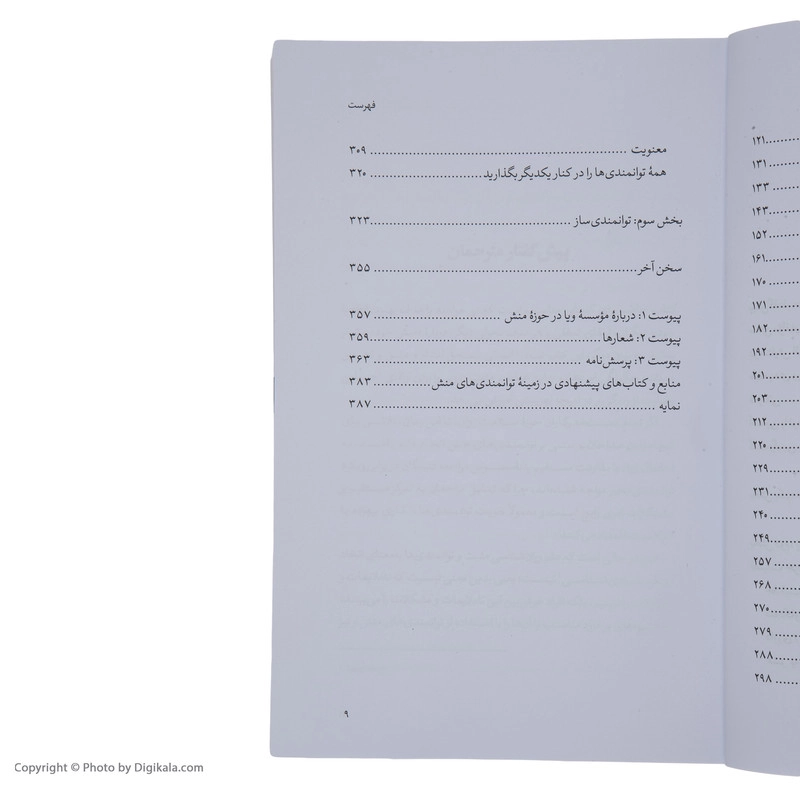 ۱۲۱
۱۳۱
۱۳۳
۱۴۳
۱۵۲
۱۶۱
۱۷۰
۱۷۱
۱۸۲
۱۹۲
۲۰۱
۲۰۳
۲۱۲
۲۲۰
۲۲۹
۲۳۱
۲۴۰
۲۴۹
۲۵۷
۲۶۸
۲۷۰
۲۷۹
۲۸۸
۲۹۸
فهرست
معنویت ۳۰۹
همهٔ توانمندی‌ها را در کنار یکدیگر بگذارید ۳۲۰
بخش سوم: توانمندی‌ساز ۳۲۳
سخن آخر ۳۵۵
پیوست ۱: دربارهٔ مؤسسهٔ ویا در حوزهٔ منش ۳۵۷
پیوست ۲: شعارها ۳۵۹
پیوست ۳: پرسش‌نامه ۳۶۳
منابع و کتاب‌های پیشنهادی در زمینهٔ توانمندی‌های منش ۳۸۳
نمایه ۳۸۷
۹
Copyright © Photo by Digikala.com